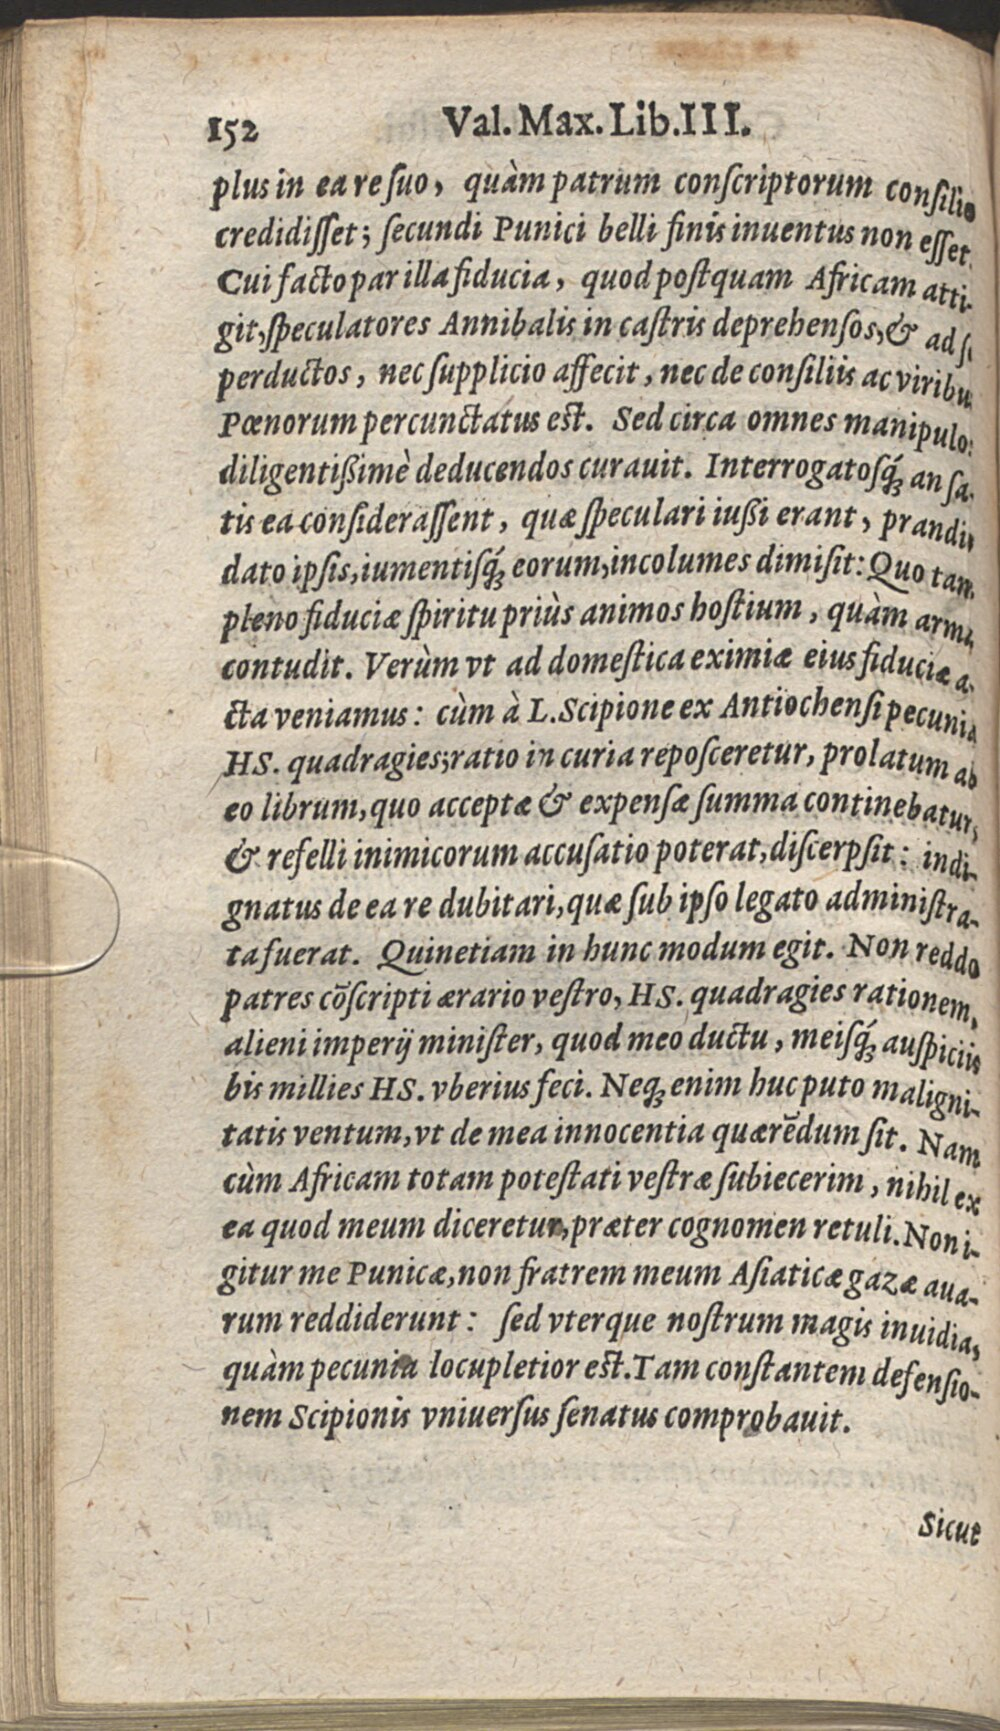 152 Val. Max. Lib. III.
plus in ea re ſuo, quàm patrum conſcriptorum conſilio
credidiſſet; ſecundi Punici belli finis inuentus non eſſet.
Cui facto par illa fiducia, quod poſtquam Africam atti-
git, ſpeculatores Annibalis in caſtris deprehenſos, & ad ſe
perductos, nec ſupplicio affecit, nec de conſiliis ac viribus
Pœnorum percunctatus eſt. Sed circa omnes manipulos
diligentißimè deducendos curauit. Interrogatoſq́; an ſa-
tis ea conſideraſſent, quæ ſpeculari iußi erant, prandio
dato ipſis, iumentiſq́; eorum, incolumes dimiſit: Quo tam
pleno fiduciæ ſpiritu priùs animos hoſtium, quàm arma
contudit. Verùm vt ad domeſtica eximiæ eius fiduciæ a-
cta veniamus: cùm à L. Scipione ex Antiochenſi pecunia
HS. quadragies; ratio in curia repoſceretur, prolatum ab
eo librum, quo acceptæ & expenſæ ſumma continebatur,
& refelli inimicorum accuſatio poterat, diſcerpſit: indi-
gnatus de ea re dubitari, quæ ſub ipſo legato adminiſtra-
ta fuerat. Quinetiam in hunc modum egit. Non reddo
patres cōſcripti ærario veſtro, HS. quadragies rationem,
alieni imperij miniſter, quod meo ductu, meiſq́; auſpiciis
bis millies HS. vberius feci. Neq; enim huc puto maligni-
tatis ventum, vt de mea innocentia quærēdum ſit. Nam
cùm Africam totam poteſtati veſtræ ſubiecerim, nihil ex
ea quod meum diceretur, præter cognomen retuli. Non i-
gitur me Punicæ, non fratrem meum Aſiaticæ gazæ aua-
rum reddiderunt: ſed vterque noſtrum magis inuidia,
quàm pecunia locupletior eſt. Tam conſtantem defenſio-
nem Scipionis vniuerſus ſenatus comprobauit.
Sicut